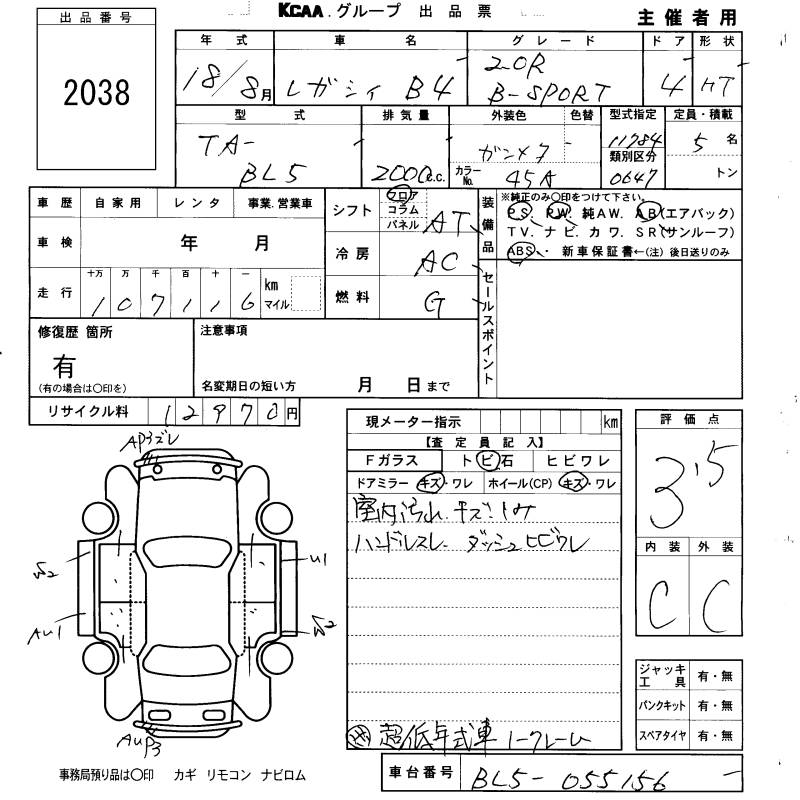 KCAA.グループ 出品票
主催者用
出品番号
2038
年式 車名 グレード ドア 形状
18/8月 レガシィ B4 2.0R B-SPORT 4 HT
型式 排気量 外装色 色替 型式指定 定員・積載
TA-BL5 2000c.c. ガンメタ 11784 5名
カラーNo. 45A 類別区分 0647 トン
車歴 自家用 レンタ 事業.営業車
シフト フロア コラム パネル AT
装備品
※純正のみ〇印をつけて下さい。
PS. PW. 純AW. AB(エアバック)
TV. ナビ. カワ. SR(サンルーフ)
ABS. 新車保証書←(注) 後日送りのみ
車検 年 月
冷房 AC
走行 十万 万 千 百 十 一
107116 km マイル
燃料 G
セールスポイント
修復歴 箇所
有
(有の場合は〇印を)
注意事項
名変期日の短い方 月 日まで
リサイクル料 12970円
現メーター指示 km
評価点
3.5
【査定員記入】
Fガラス トビ石 ヒビワレ
ドアミラー キズ・ワレ ホイール(CP) キズ・ワレ
室内汚れ.キズ.シミ
ハンドルスレ ダッシュヒビワレ
内装 外装
C C
AP3ズレ
U1
AU1
AUP3
ジャッキ工具 有・無
パンクキット 有・無
スペアタイヤ 有・無
超低年式車 ノークレーム
事務局預り品は〇印 カギ リモコン ナビロム
車台番号 BL5-055156